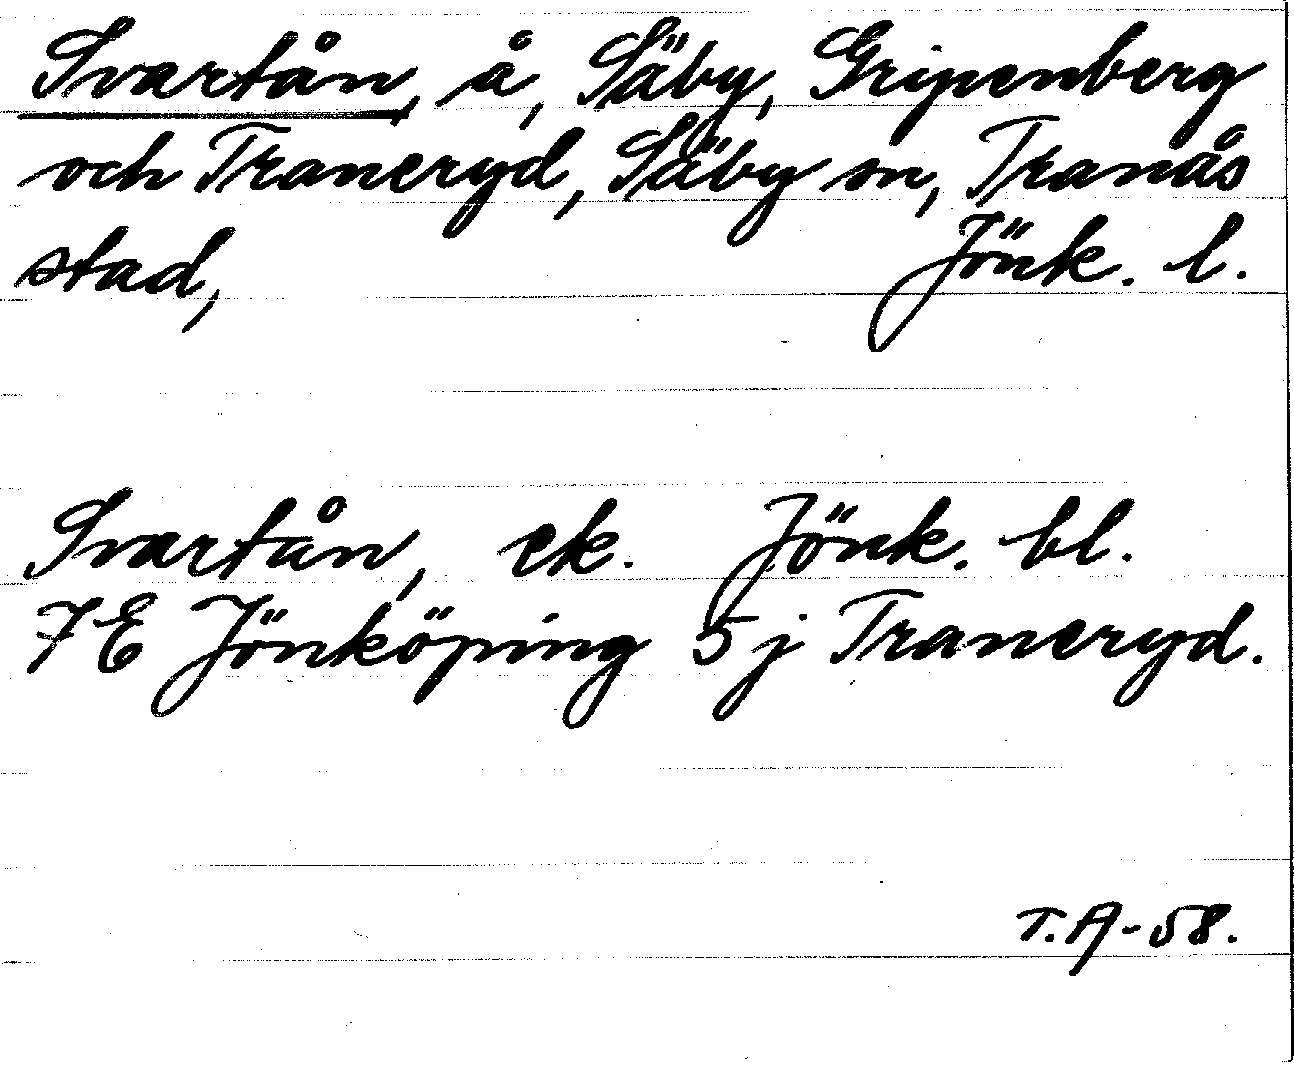 Svartån, å, Säby, Gripenberg
och Traneryd, Säby sn, Tranås
stad, Jönk. l.
Svartån, ek. Jönk. bl.
7E Jönköping 5j Traneryd.
T.A-58.